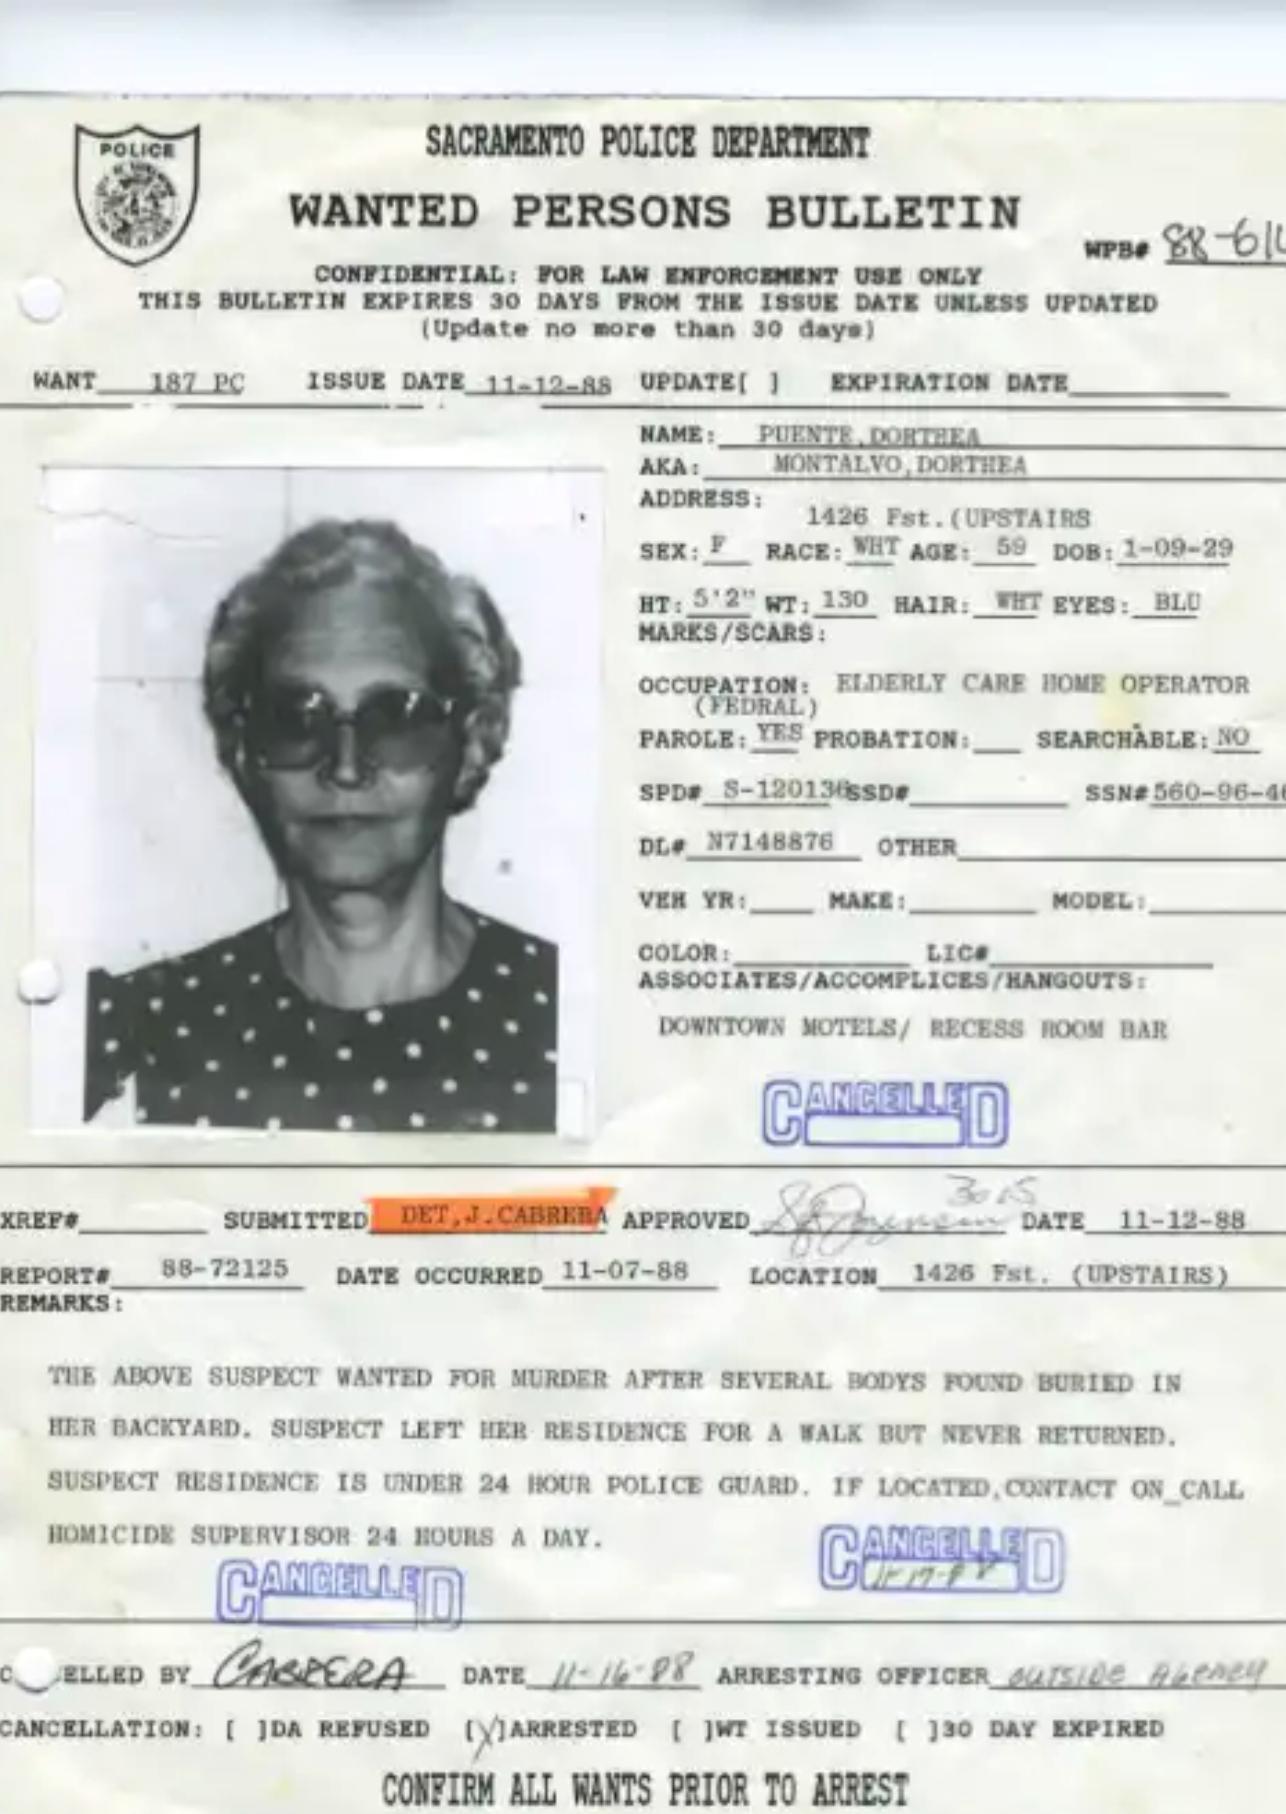 POLICE
SACRAMENTO POLICE DEPARTMENT
WANTED PERSONS BULLETIN
WPB# 88-61
CONFIDENTIAL: FOR LAW ENFORCEMENT USE ONLY
THIS BULLETIN EXPIRES 30 DAYS FROM THE ISSUE DATE UNLESS UPDATED
(Update no more than 30 days)
WANT 187 PC ISSUE DATE 11-12-88 UPDATE[ ] EXPIRATION DATE
NAME: PUENTE,DORTHEA
AKA: MONTALVO,DORTHEA
ADDRESS:
1426 Fst.(UPSTAIRS
SEX: F RACE: WHT AGE: 59 DOB: 1-09-29
HT: 5'2" WT: 130 HAIR: WHT EYES: BLU
MARKS/SCARS:
OCCUPATION: ELDERLY CARE HOME OPERATOR
(FEDRAL)
PAROLE: YES PROBATION: SEARCHABLE: NO
SPD# S-120136 SSD# SSN# 560-96-46
DL# N7148876 OTHER
VEH YR: MAKE: MODEL:
COLOR: LIC#
ASSOCIATES/ACCOMPLICES/HANGOUTS:
DOWNTOWN MOTELS/ RECESS ROOM BAR
CANCELLED
3015
XREF# SUBMITTED DET,J.CABRERA APPROVED DATE 11-12-88
REPORT# 88-72125 DATE OCCURRED 11-07-88 LOCATION 1426 Fst. (UPSTAIRS)
REMARKS:
THE ABOVE SUSPECT WANTED FOR MURDER AFTER SEVERAL BODYS FOUND BURIED IN
HER BACKYARD. SUSPECT LEFT HER RESIDENCE FOR A WALK BUT NEVER RETURNED.
SUSPECT RESIDENCE IS UNDER 24 HOUR POLICE GUARD. IF LOCATED,CONTACT ON_CALL
HOMICIDE SUPERVISOR 24 HOURS A DAY.
CANCELLED
11-17-88
CANCELLED
C ELLED BY CABRERA DATE 11-16-88 ARRESTING OFFICER OUTSIDE AGENCY
CANCELLATION: [ ]DA REFUSED [X]ARRESTED [ ]WT ISSUED [ ]30 DAY EXPIRED
CONFIRM ALL WANTS PRIOR TO ARREST